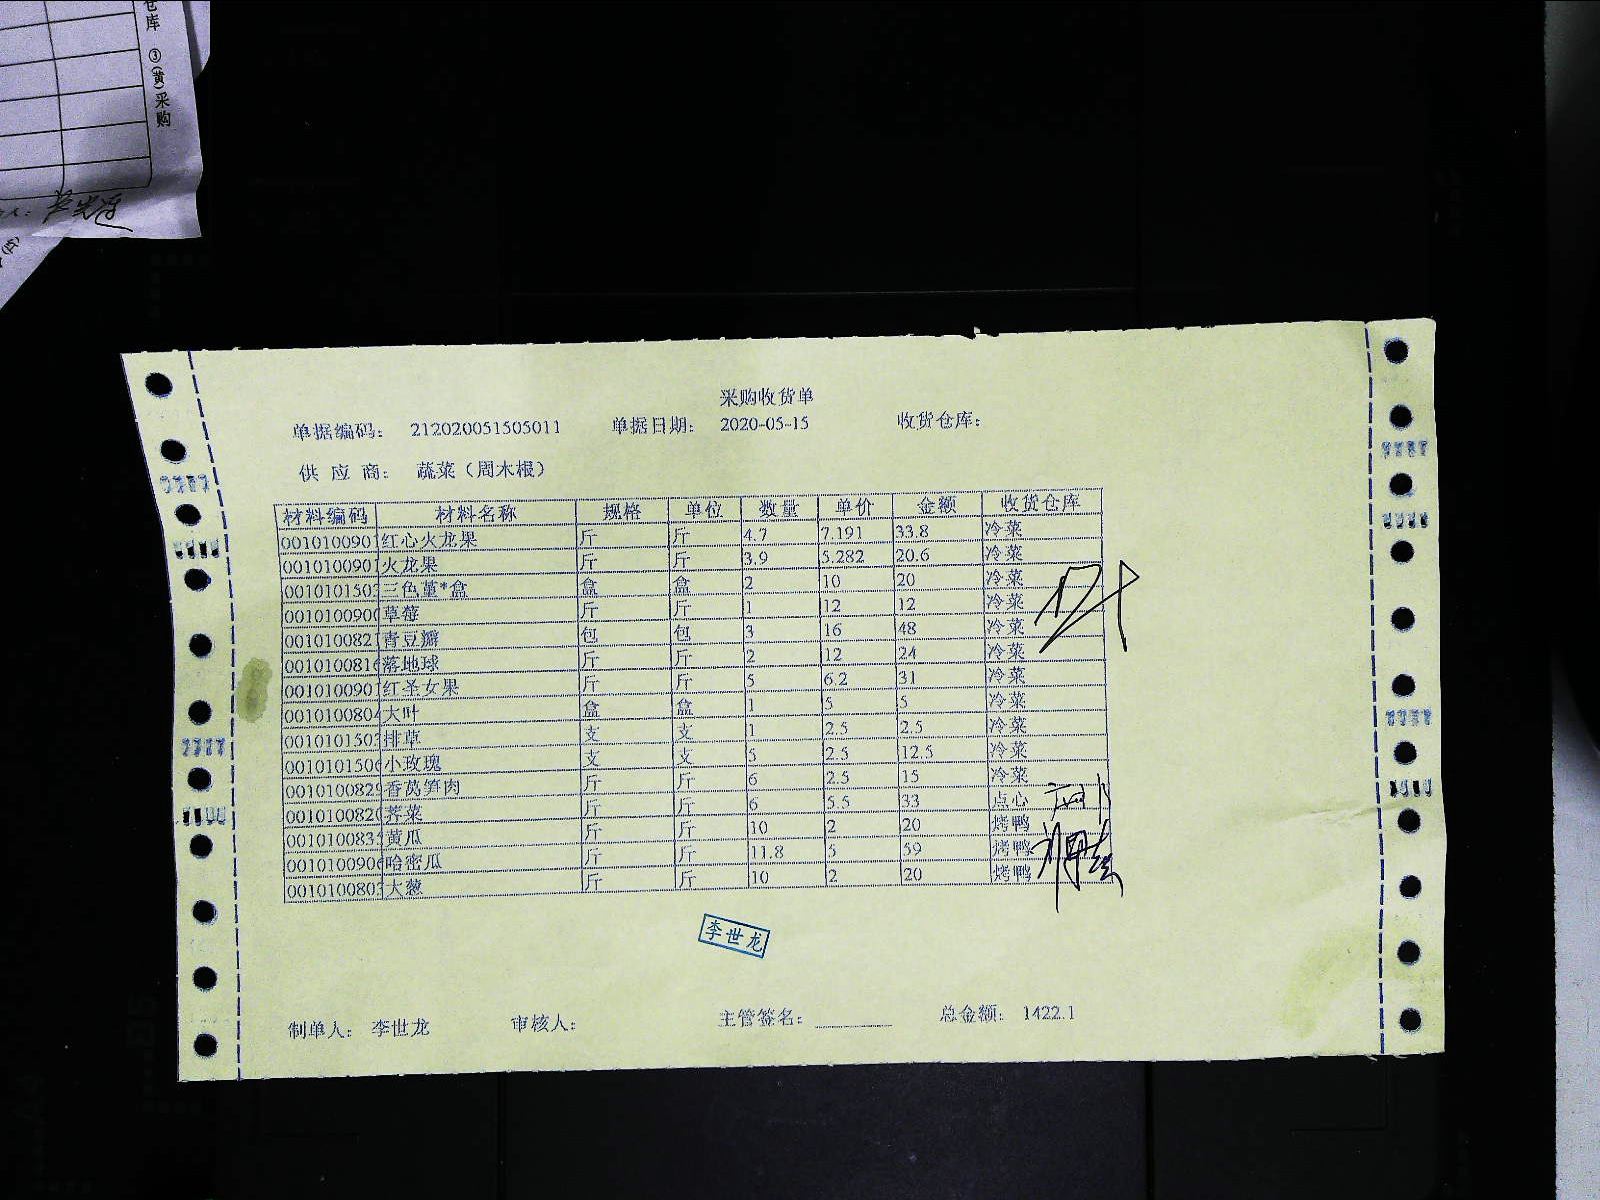 仓库 ③(黄)采购
采购收货单
单据编码: 212020051505011 单据日期: 2020-05-15 收货仓库:
供 应 商: 蔬菜（周木根）
材料编码 材料名称 规格 单位 数量 单价 金额 收货仓库
0010100901 红心火龙果 斤 斤 4.7 7.191 33.8 冷菜
0010100901 火龙果 斤 斤 3.9 5.282 20.6 冷菜
001010150 三色堇*盒 盒 盒 2 10 20 冷菜
0010100900 草莓 斤 斤 1 12 12 冷菜
001010082 青豆瓣 包 包 3 16 48 冷菜
001010081 落地球 斤 斤 2 12 24 冷菜
001010090 红圣女果 斤 斤 5 6.2 31 冷菜
001010080 大叶 盒 盒 1 5 5 冷菜
001010150 排草 支 支 1 2.5 2.5 冷菜
001010150 小玫瑰 支 支 5 2.5 12.5 冷菜
001010082 香莴笋肉 斤 斤 6 2.5 15 冷菜
001010082 荠菜 斤 斤 6 5.5 33 点心
001010083 黄瓜 斤 斤 10 2 20 烤鸭
001010090 哈密瓜 斤 斤 11.8 5 59 烤鸭
001010080 大葱 斤 斤 10 2 20 烤鸭
李世龙
制单人: 李世龙 审核人: 主管签名: 总金额: 1422.1